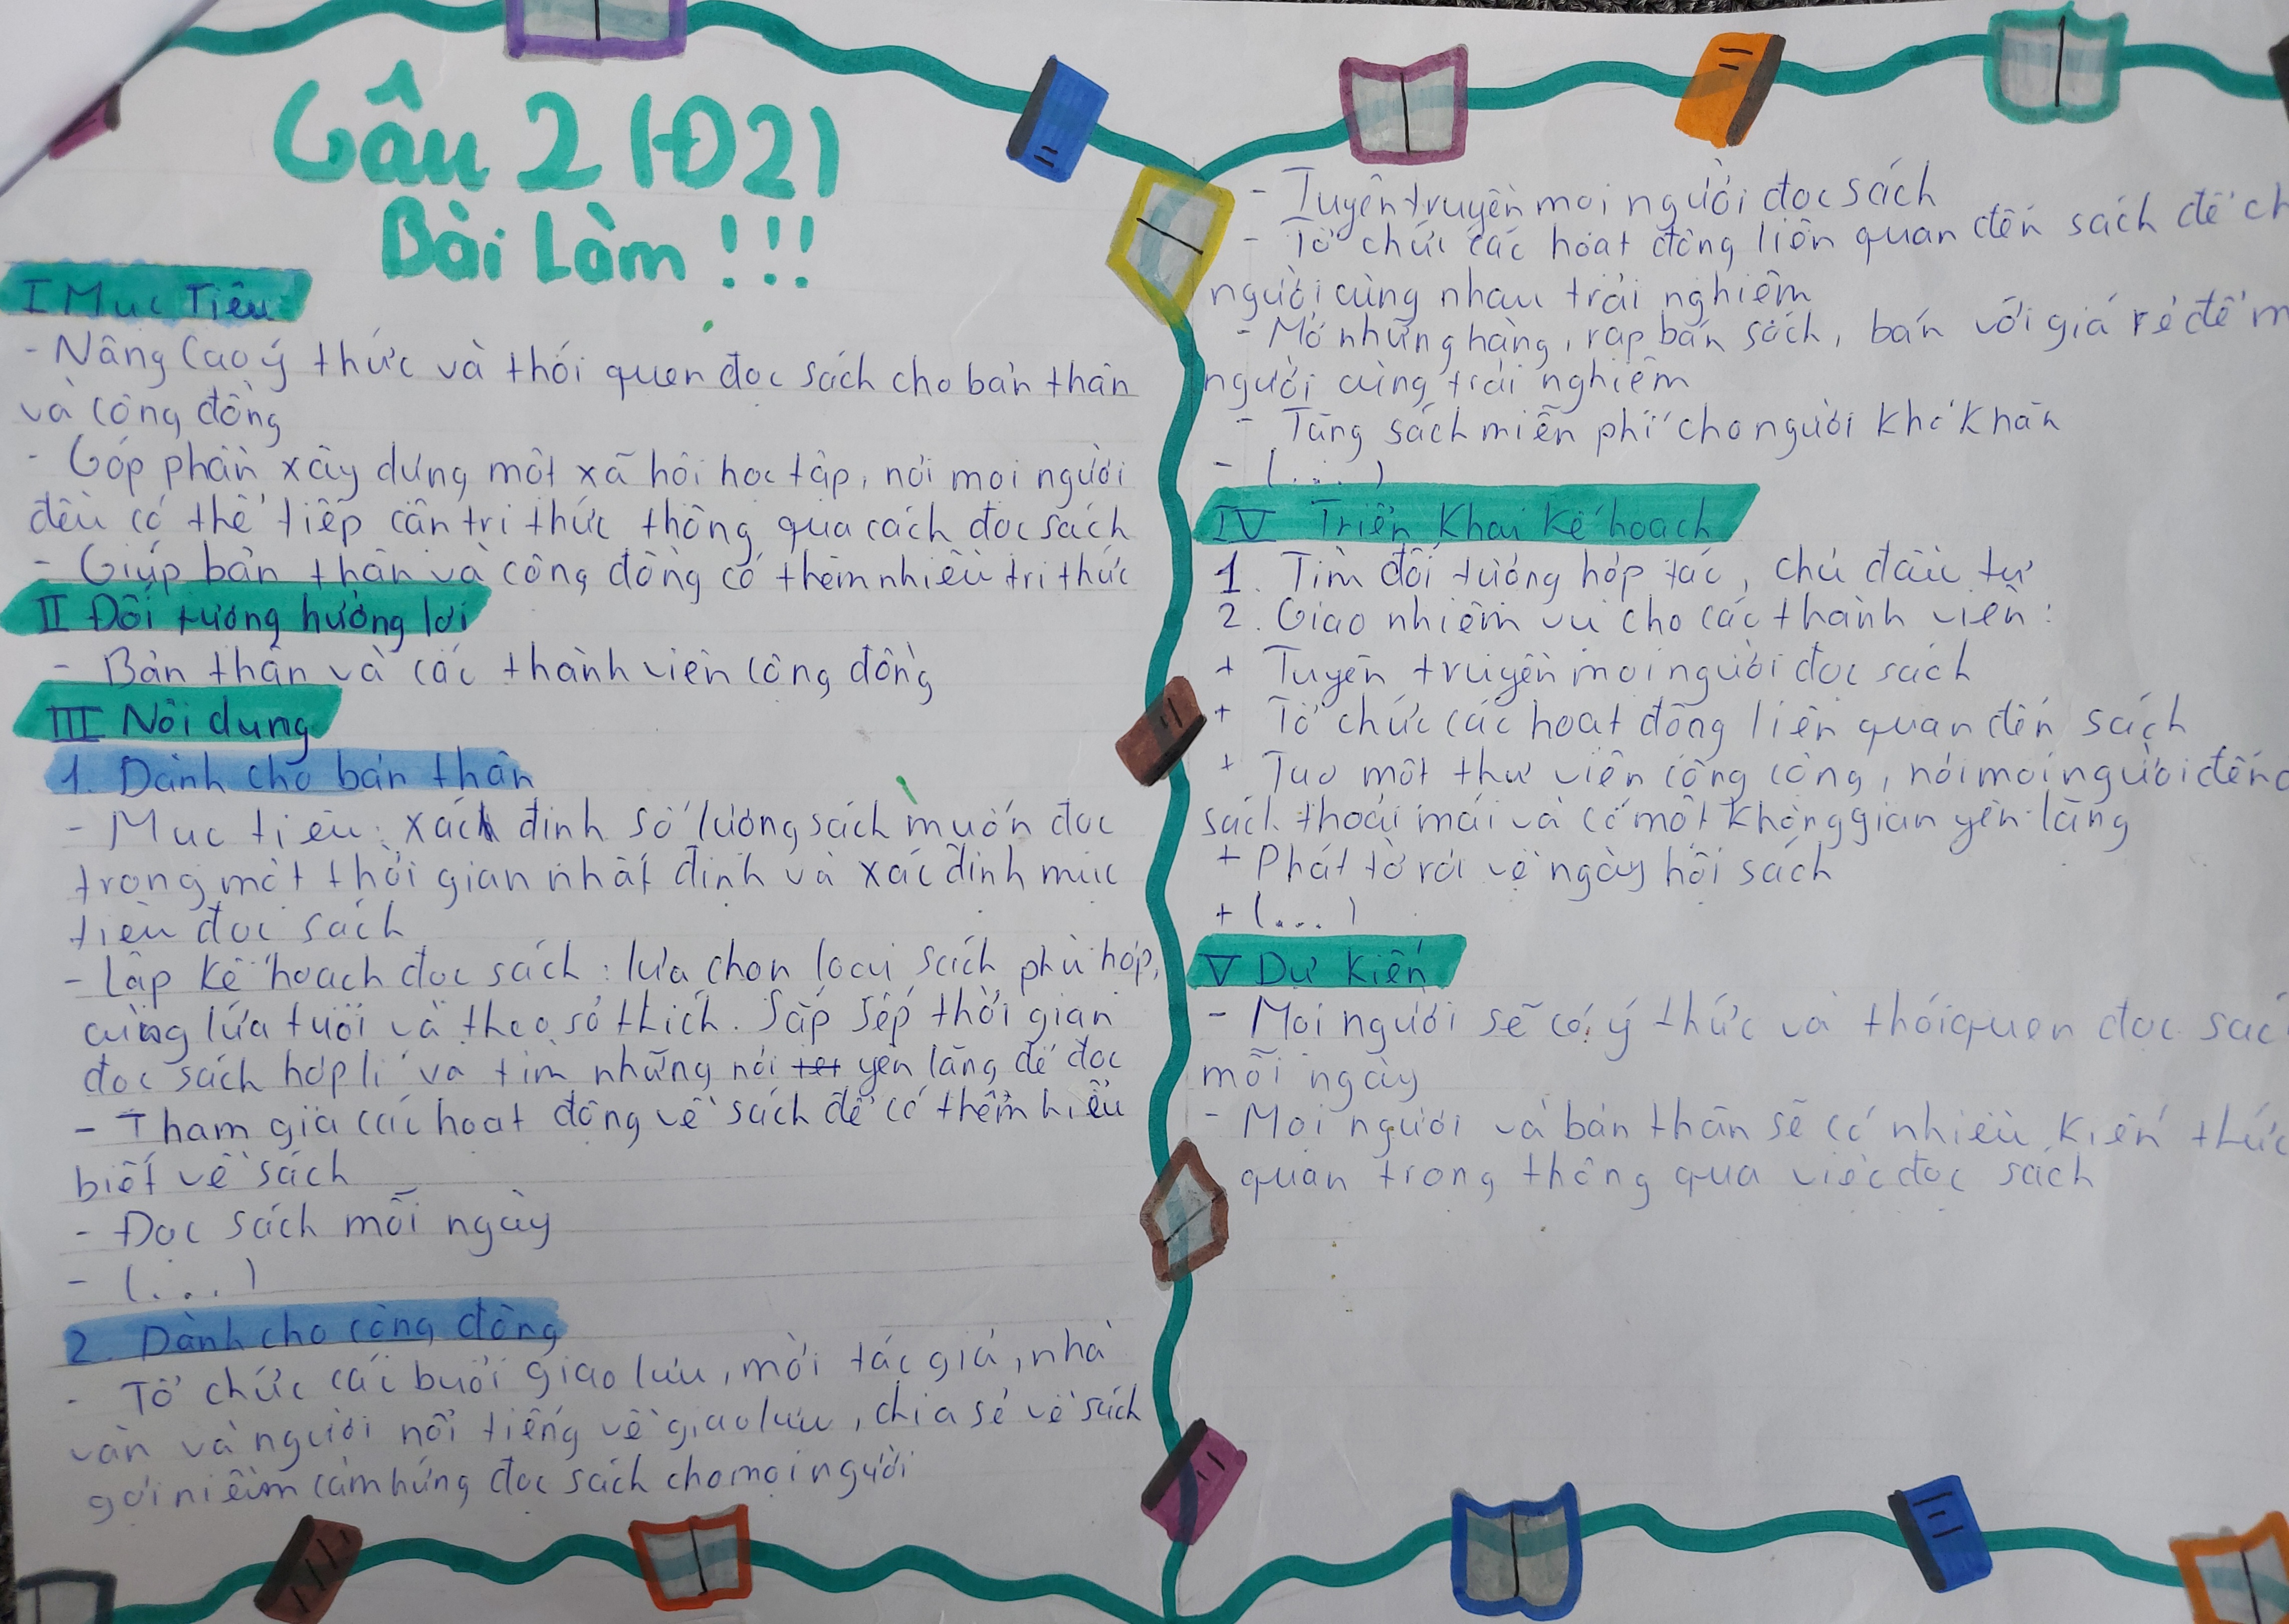 Câu 2 (Đ2)
Bài Làm !!!
I Mục Tiêu
- Nâng cao ý thức và thói quen đọc sách cho bản thân
và cộng đồng
- Góp phần xây dựng một xã hội học tập, nơi mọi người
đều có thể tiếp cận tri thức thông qua cách đọc sách
- Giúp bản thân và cộng đồng có thêm nhiều tri thức
II Đối tượng hưởng lợi
- Bản thân và các thành viên cộng đồng
III Nội dung
1. Dành cho bản thân
- Mục tiêu: xác định số lượng sách muốn đọc
trong một thời gian nhất định và xác định mục
tiêu đọc sách
- Lập kế hoạch đọc sách: lựa chọn loại sách phù hợp,
cùng lứa tuổi và theo sở thích. Sắp sếp thời gian
đọc sách hợp lí và tìm những nơi yên lặng để đọc
- Tham gia các hoạt động về sách để có thêm hiểu
biết về sách
- Đọc sách mỗi ngày
- (...)
2. Dành cho cộng đồng
- Tổ chức các buổi giao lưu, mời tác giả, nhà
văn và người nổi tiếng về giao lưu, chia sẻ về sách
gợi niềm cảm hứng đọc sách cho mọi người
- Tuyên truyền mọi người đọc sách
- Tổ chức các hoạt động liên quan đến sách để
người cùng nhau trải nghiệm
- Mở những hàng, rạp bán sách, bán với giá rẻ để
người cùng trải nghiệm
- Tặng sách miễn phí cho người khó khăn
- (...)
IV Triển khai kế hoạch
1. Tìm đối tượng hợp tác, chủ đầu tư
2. Giao nhiệm vụ cho các thành viên:
+ Tuyên truyền mọi người đọc sách
+ Tổ chức các hoạt động liên quan đến sách
+ Tạo một thư viện công cộng, nơi mọi người đến
sách thoải mái và có một không gian yên lặng
+ Phát tờ rơi về ngày hội sách
+ (...)
V Dự kiến
- Mọi người sẽ có ý thức và thói quen đọc
mỗi ngày
- Mọi người và bản thân sẽ có nhiều kiến thức
quan trọng thông qua việc đọc sách